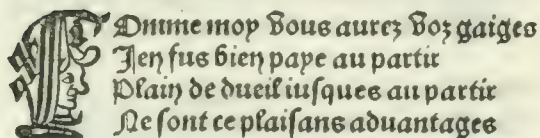 COmme moy Vous aurez Voz gaiges
Jen fus bien paye au partir
Plain de dueil iuſques au partir
Ne ſont ce plaiſans aduantages